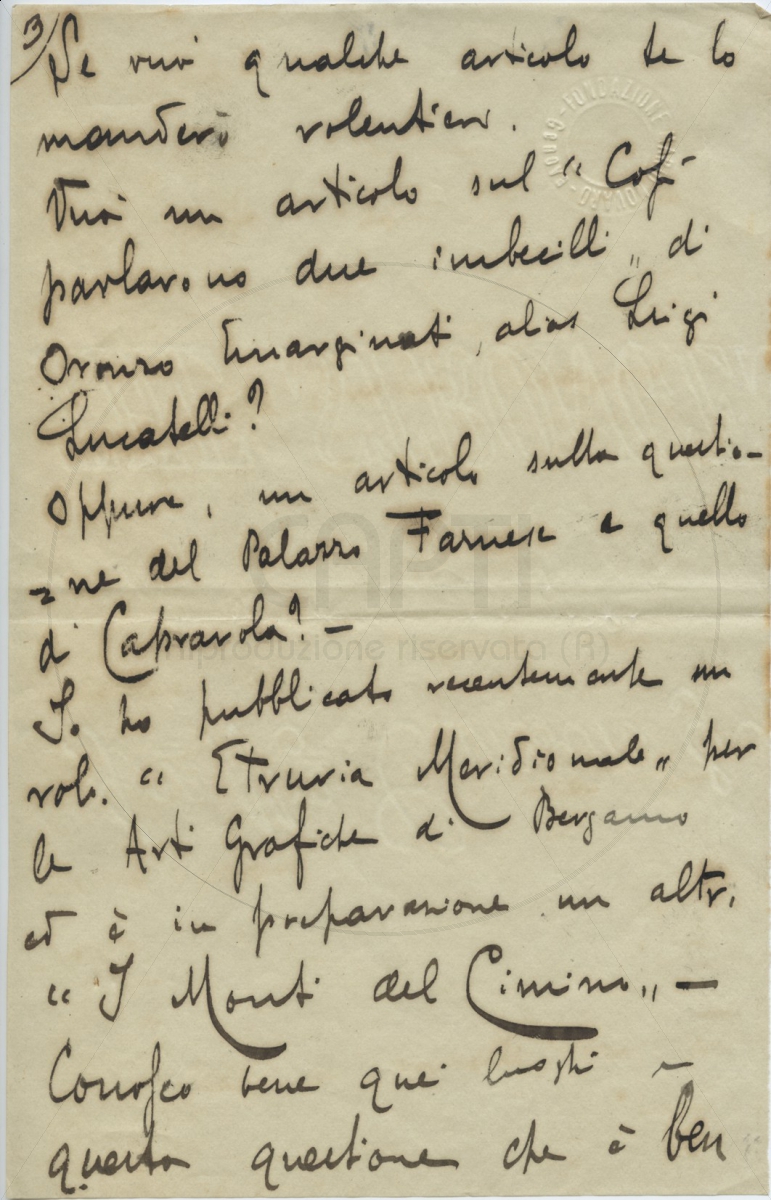 3/
Se vuoi qualche articolo te lo
manderò volentieri.
Vuoi un articolo sul "Così
parlarono due imbecilli" di
Oronzo Emarginati, alias Luigi
Lucatelli?
Oppure, un articolo sulla questio-
=ne del Palazzo Farnese e quello
di Caprarola? -
Io ho pubblicato recentemente un
vol. "Etruria Meridionale" per
le Arti Grafiche di Bergamo
ed è in preparazione un altro
"I Monti del Cimino" -
Conosco bene quei luoghi e
questa questione che è ben
FONDAZIONE
CAPTI
riproduzione riservata (R)